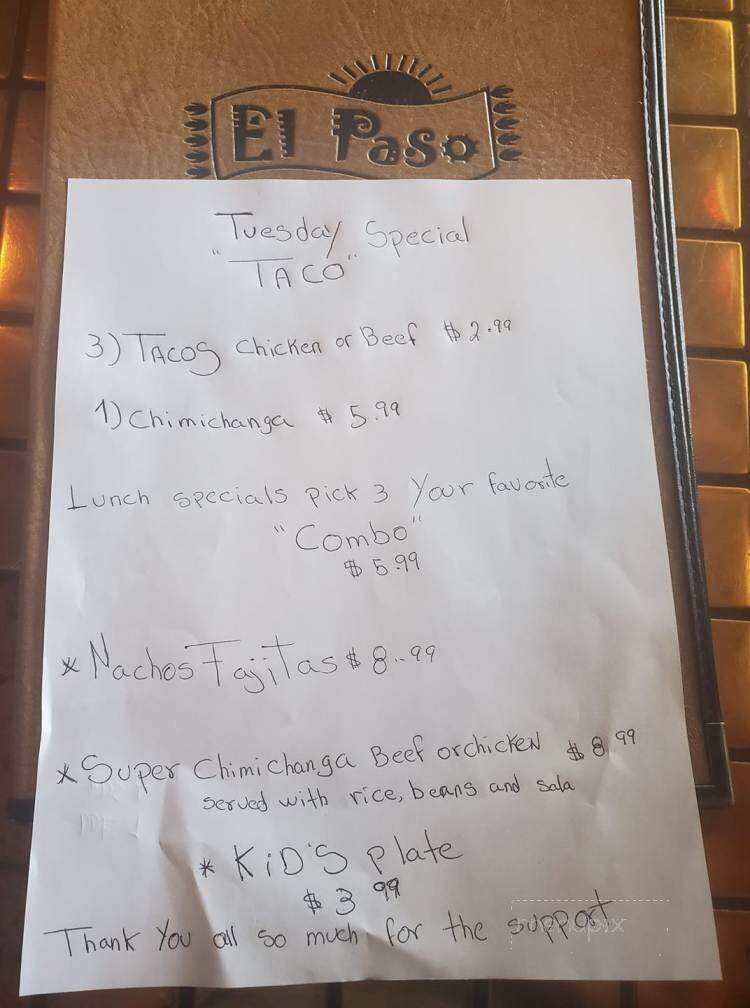 El Paso
Tuesday Special
"TACO"
3) TACOS chicken or Beef $2.99
1) chimichanga $ 5.99
Lunch specials pick 3 Your favorite
"Combo"
$5.99
* Nachos Fajitas $8.99
* Super Chimichanga Beef or chicken $8.99
served with rice, beans and sala
* KiD'S plate
$3.99
Thank You all so much for the support